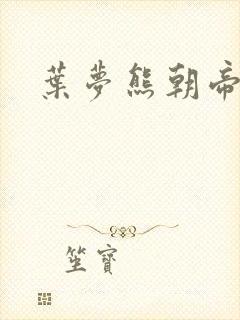 葉夢熊朝帝
坐寶